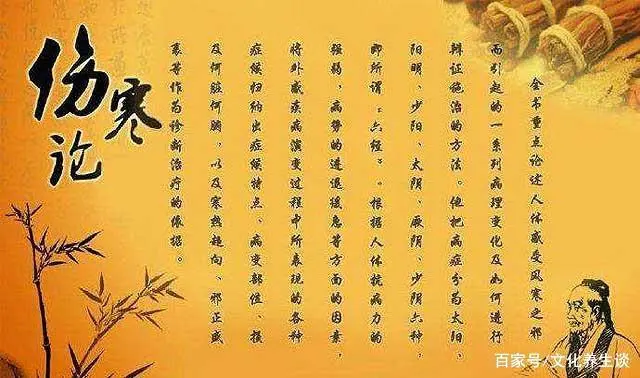 伤寒论
全书重点论述人体感受风寒之邪
而引起的一系列病理变化及如何进行
辨证施治的方法。他把病症分为太阳、
阳明、少阳、太阴、厥阴、少阴六种,
即所谓“六经”。根据人体抗病力的
强弱,病势的进退缓急等方面的因素,
将外感疾病演变过程中所表现的各种
症候归纳出症候特点、病变部位、损
及何脏何腑,以及寒热趋向、邪正盛
衰等作为诊断治疗的依据。
百家号/文化养生谈